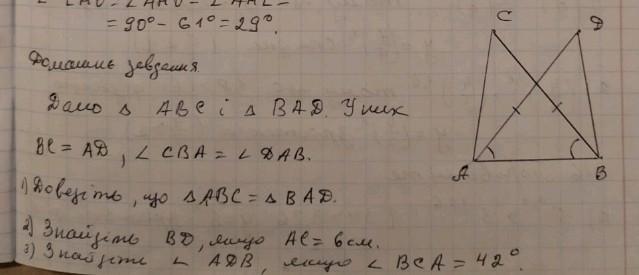 = 90° - 61° = 29°.
Домашнє завдання
Дано △ ABC і △ BAD. У них
BC = AD, ∠ CBA = ∠ DAB.
1) Доведіть, що △ABC = △ BAD.
2) Знайдіть BD, якщо AC = 6 см.
3) Знайдіть ∠ ADB, якщо ∠ BCA = 42°.
C D
A B